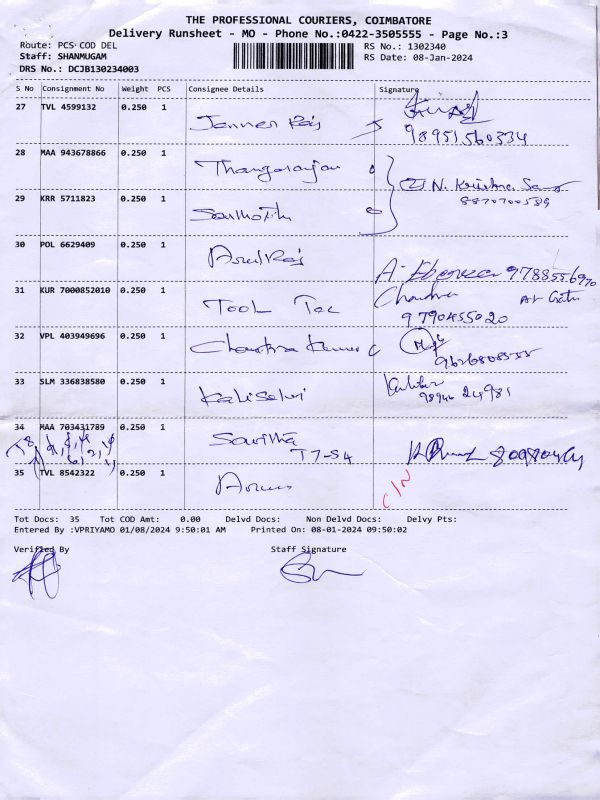 THE PROFESSIONAL COURIERS, COIMBATORE
Delivery Runsheet - MO - Phone No.:0422-3505555 - Page No.:3
Route: PCS COD DEL RS No.: 1302340
Staff: SHANMUGAM RS Date: 08-Jan-2024
DRS No.: DCJB130234003
S No Consignment No Weight PCS Consignee Details Signature
27 TVL 4599132 0.250 1
98951560334
28 MAA 943678866 0.250 1
N. Krishna
29 KRR 5711823 0.250 1
30 POL 6629409 0.250 1 Arul Raj
A. Ebenezer 9788556970
31 KUR 7000852010 0.250 1 Tool Chandra
9790455020
32 VPL 403949696 0.250 1 Chandra Kumar
9626808535
33 SLM 336838580 0.250 1 Kaliselvi
34 MAA 703431789 0.250 1 Savitha
T7-S4
35 TVL 8542322 0.250 1 C/N
Tot Docs: 35 Tot COD Amt: 0.00 Delvd Docs: Non Delvd Docs: Delvy Pts:
Entered By :VPRIYAMO 01/08/2024 9:50:01 AM Printed On: 08-01-2024 09:50:02
Verified By Staff Signature